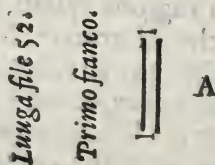 Lunga file 52.
Primo fianco.
A